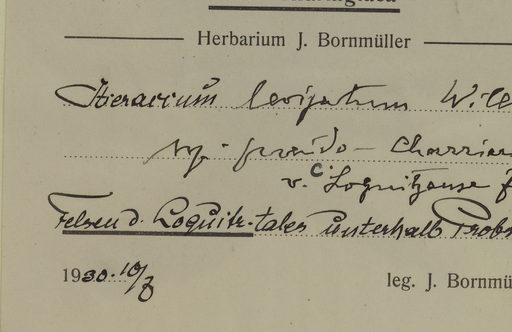 Herbarium J. Bornmüller
Hieracium levigatum Wille
v. Loquitzense
Felsen d. Loquitz-tales unterhalb Probs
1930. 10/7
leg. J. Bornmü